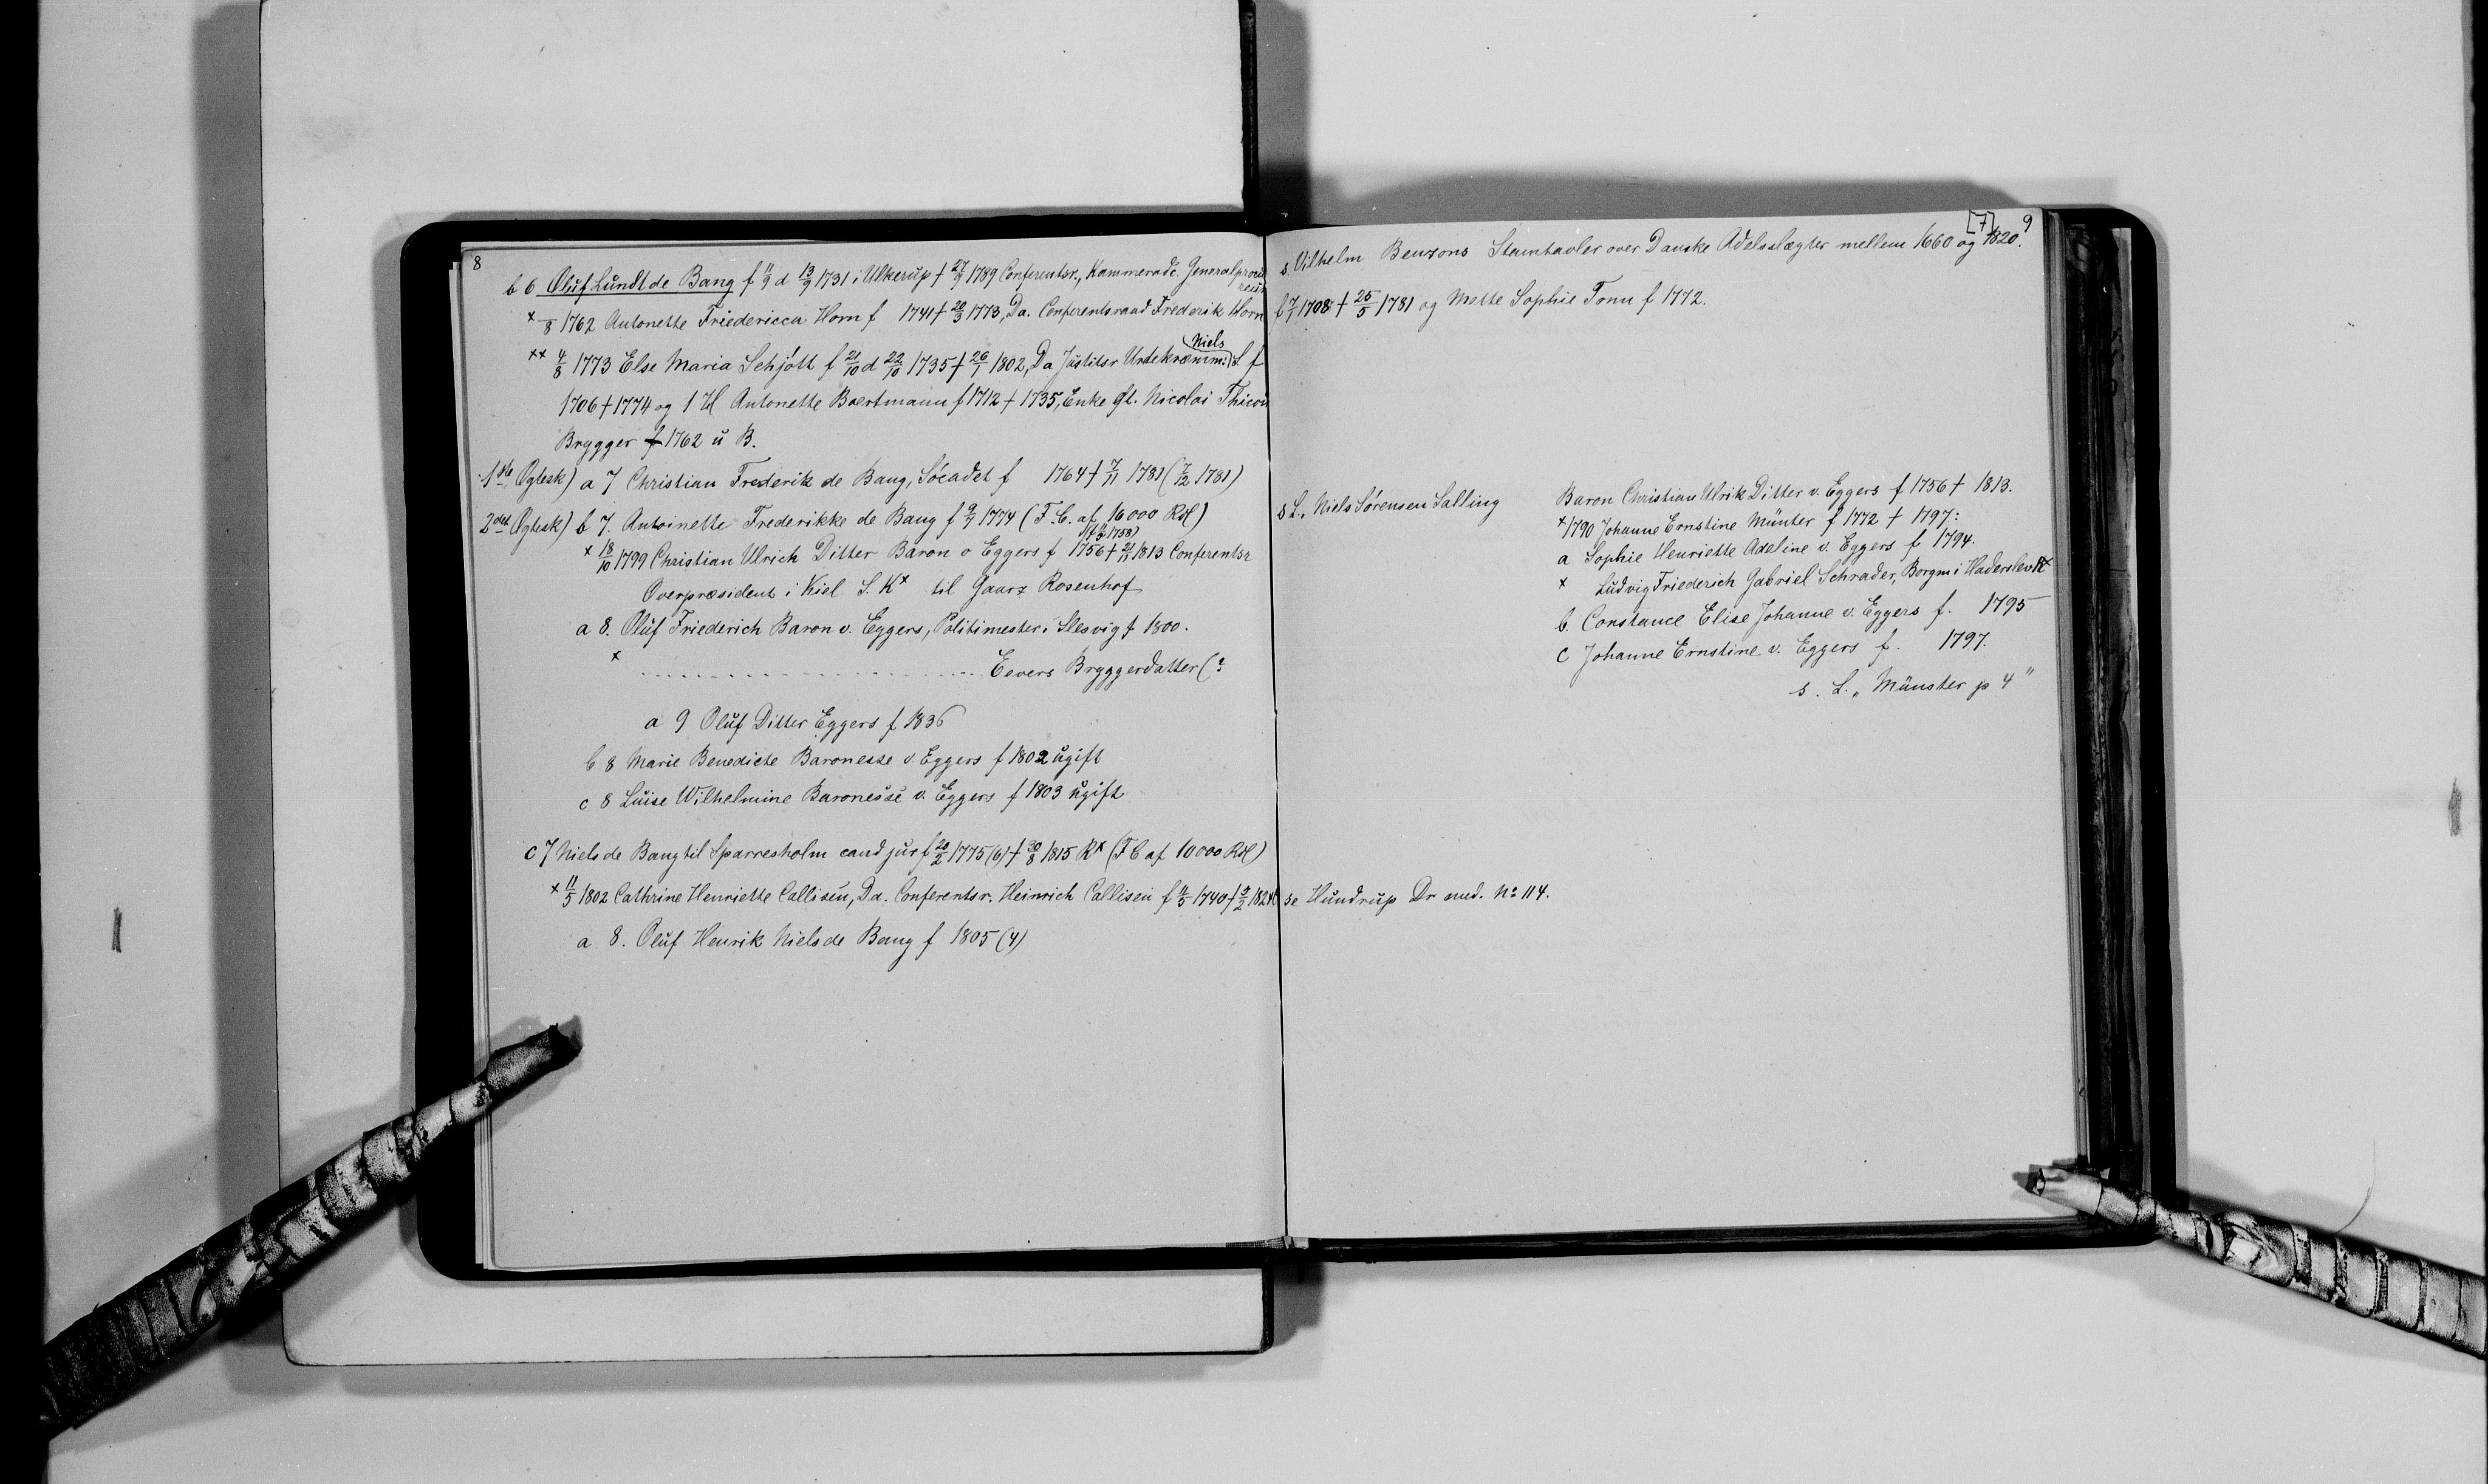 8
b 6 Oluf Lundt de Bang f 11/9 d 13/9 1731 i Ulkerup † 27/9 1789 Conferentsr., Kammeradv. Generalprocu
reur
× /8 1762 Antonette Friedericca Horn f 1741 † 20/3 1773, Da. Conferentsraad Frederik Horn
Niels
×× 4/8 1773 Else Maria Schjøtt f 21/10 d 22/10 1735 † 26/1 1802, Da Justitsr Urtekræmm: S. f
1706 † 1774 og 1 H Antonette Baertmann f 1712 † 1735, Enke eft. Nicolai
Brygger f 1762 u B.
1ste Ægtesk) a 7 Christian Frederik de Bang, Søcadet f 1764 † 7/11 1781 (7/12 1781)
2det Ægtesk) b 7. Antoinette Frederikke de Bang f 9/7 1774 (F. C. af 16000 Rdl)
1758)
× 18/10 1799 Christian Ulrich Ditter Baron v Eggers f 1756 † 21/11 1813 Conferentsr
Overpræsident i Kiel S. K× til Gaarz Rosenhof
a 8. Oluf Friederich Baron v. Eggers, Politimester i Slesvig f 1800.
× ........................ Eevers Bryggerdatter (?
a 9 Oluf Ditter Eggers f 1836
b 8 Marie Benedicte Baronesse v. Eggers f 1802 ugift
c 8 Luise Wilhelmine Baronesse v. Eggers f 1803 ugift
c 7 Niels de Bang til Sparresholm cand jur f 20/2 1775 (6) † 30/8 1815 R× (F C af 10000 Rdl)
× 11/5 1802 Cathrine Henriette Callisen, Da. Conferentsr. Heinrich Callisen f 11/5 1740 † 5/2 1824
a 8. Oluf Henrik Niels de Bang f 1805 (4)
[7] 9
s. Vilhelm Benzons Stamtavler over Danske Adelsslægter mellem 1660 og 1820.
f 7/1 1708 † 25/5 1781 og Mette Sophie Tonn f 1772.
s L. Niels Sørensen Salling
Baron Christian Ulrik Ditter v. Eggers f 1756 † 1813.
× 1790 Johanne Ernstine Münter f 1772 † 1797:
a Sophie Henriette Adeline v. Eggers f 1794.
× Ludvig Friederich Gabriel Schrader, Borgm i Haderslev R×
b. Constance Elise Johanne v. Eggers f. 1795
c Johanne Ernstine v. Eggers f. 1797.
s. L. „Münster p 4"
se Hundrup Dr med. No 114.